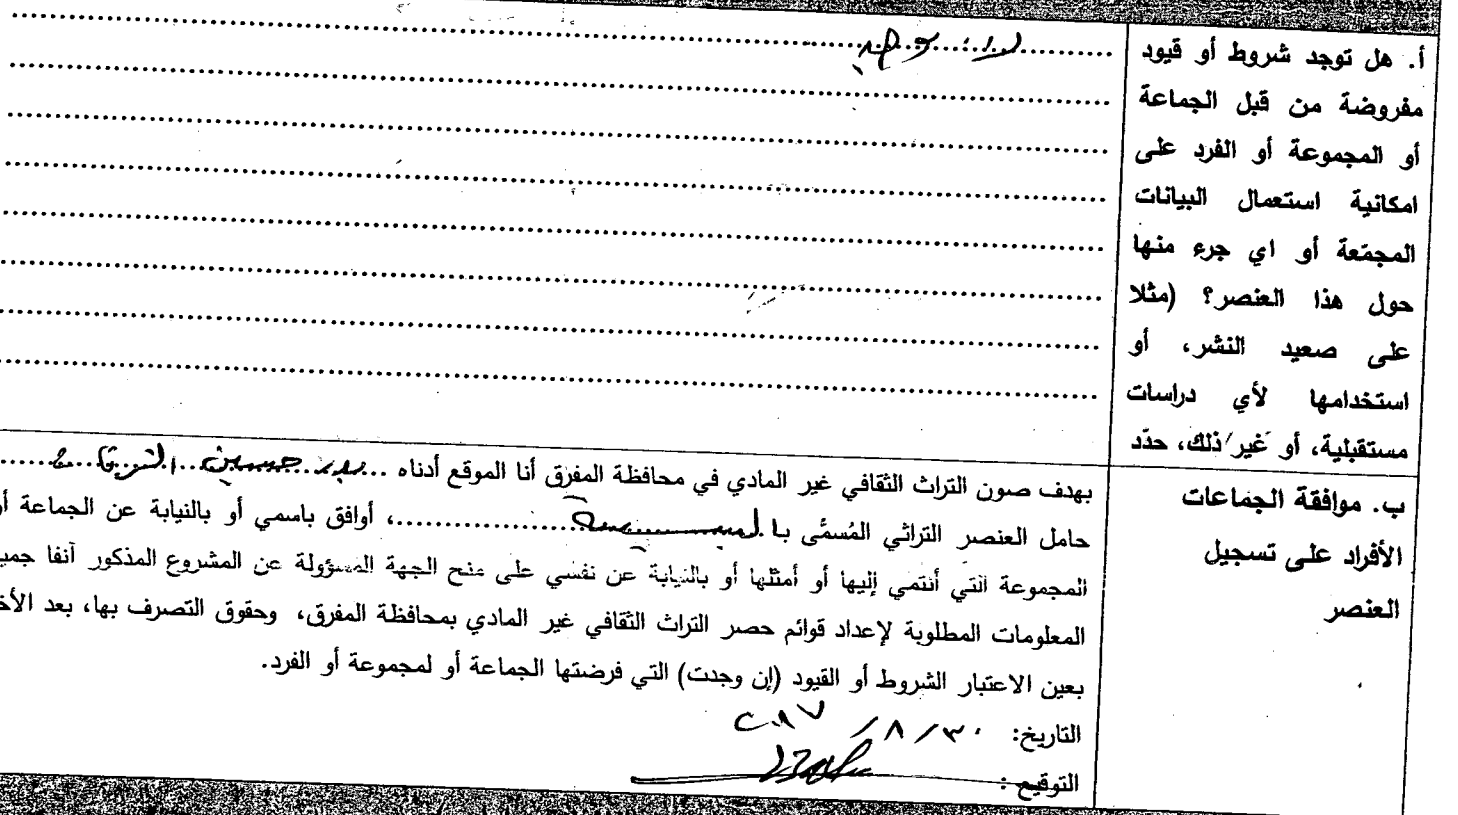 أ. هل توجد شروط أو قيود
مفروضة من قبل الجماعة
أو المجموعة أو الفرد على
امكانية استعمال البيانات
المجمّعة أو اي جرء منها
حول هذا العنصر؟ (مثلا
على صعيد النشر، أو
استخدامها لأي دراسات
مستقبلية، أو غير ذلك، حدّد
لا يوجد
ب. موافقة الجماعات
الأفراد على تسجيل
العنصر
بهدف صون التراث الثقافي غير المادي في محافظة المفرق أنا الموقع أدناه ... بدر حسين الشرفات
حامل العنصر التراثي المُسمَّى بـا ...، أوافق باسمي أو بالنيابة عن الجماعة أو
المجموعة التي أنتمي إليها أو أمثلها أو بالنيابة عن نفسي على منح الجهة المسؤولة عن المشروع المذكور آنفا جميـ
المعلومات المطلوبة لإعداد قوائم حصر التراث الثقافي غير المادي بمحافظة المفرق، وحقوق التصرف بها، بعد الأخـ
بعين الاعتبار الشروط أو القيود (إن وجدت) التي فرضتها الجماعة أو لمجموعة أو الفرد.
التاريخ: ٣٠ / ٨ / ٢٠١٧
التوقيع :